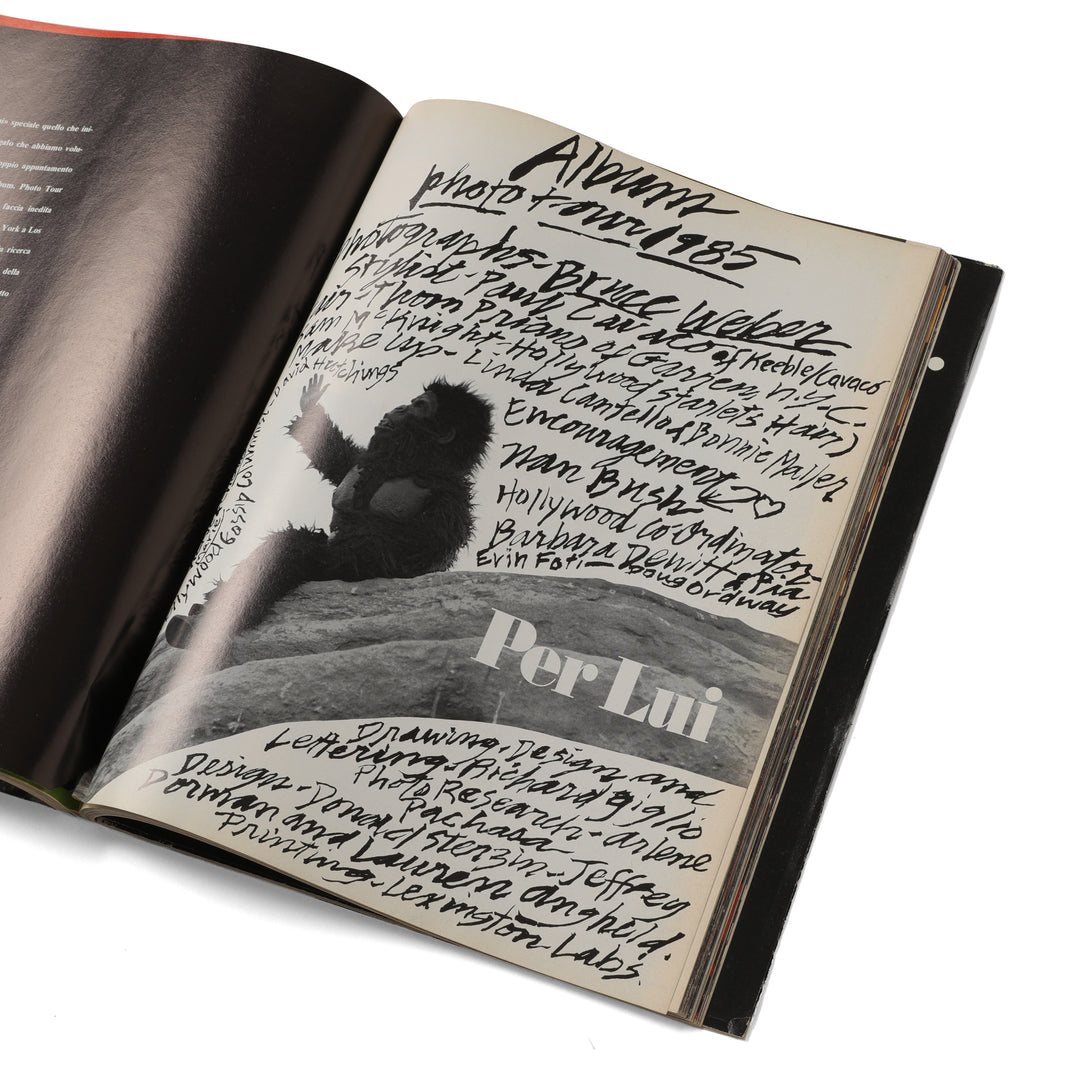 » speciale quello che ini-
galo che abbiamo volu-
oppio appuntamento
bum. Photo Tour
faccia inedita
York a Los
ricerca
della
Album
photo tour 1985
Photographs - Bruce Weber
Stylist - Paul Cavaco of Keeble/Cavaco
Hair - Thom Priano of Garren, N.Y.C.
Sam McKnight - Hollywood Starlets Hair)
Make up - Linda Cantello & Bonnie Maller
David Hutchings
Encouragement
Nan Bush
Hollywood Co-Ordinator
Barbara Dewitt & Pia
Evin Foti - Doug Ordway
Gossip Columnist
Per Lui
Drawing, Design and
Lettering - Richard Giglio
Photo Research - Arlene
Pachasa
Design - Donald Sterzin - Jeffrey
Dorman and Lauren Angheld.
Printing - Lexington Labs.